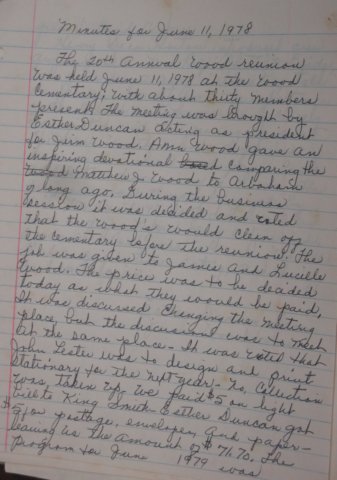 Minutes for June 11, 1978
The 20th Annual Wood reunion
was held June 11, 1978 at the Wood
Cementary, with about thirty members
present. The meeting was brough by
Esther Duncan acting as president
for Jim Wood. Ann Wood gave an
inspiring devotional comparing the
Wood Matthew J Wood to Arbaham
of long ago. During the business
session it was decided and voted
that the Wood's would clean off
the cementary before the reunion. The
job was given to James and Lucille
Wood. The price was to be decided
today as what they would be paid.
It was discussed Changing the meeting
place but the discussion was to meet
at the same place. It was voted that
John Lester was to design and print
Stationary for the next year. No, Collection
was taken up, we paid $5 on light
bill to King Smith. Esther Duncan got
for postage, envelopes, and paper-
leaving us the Amount of $71.70. The
program for June 1979 was